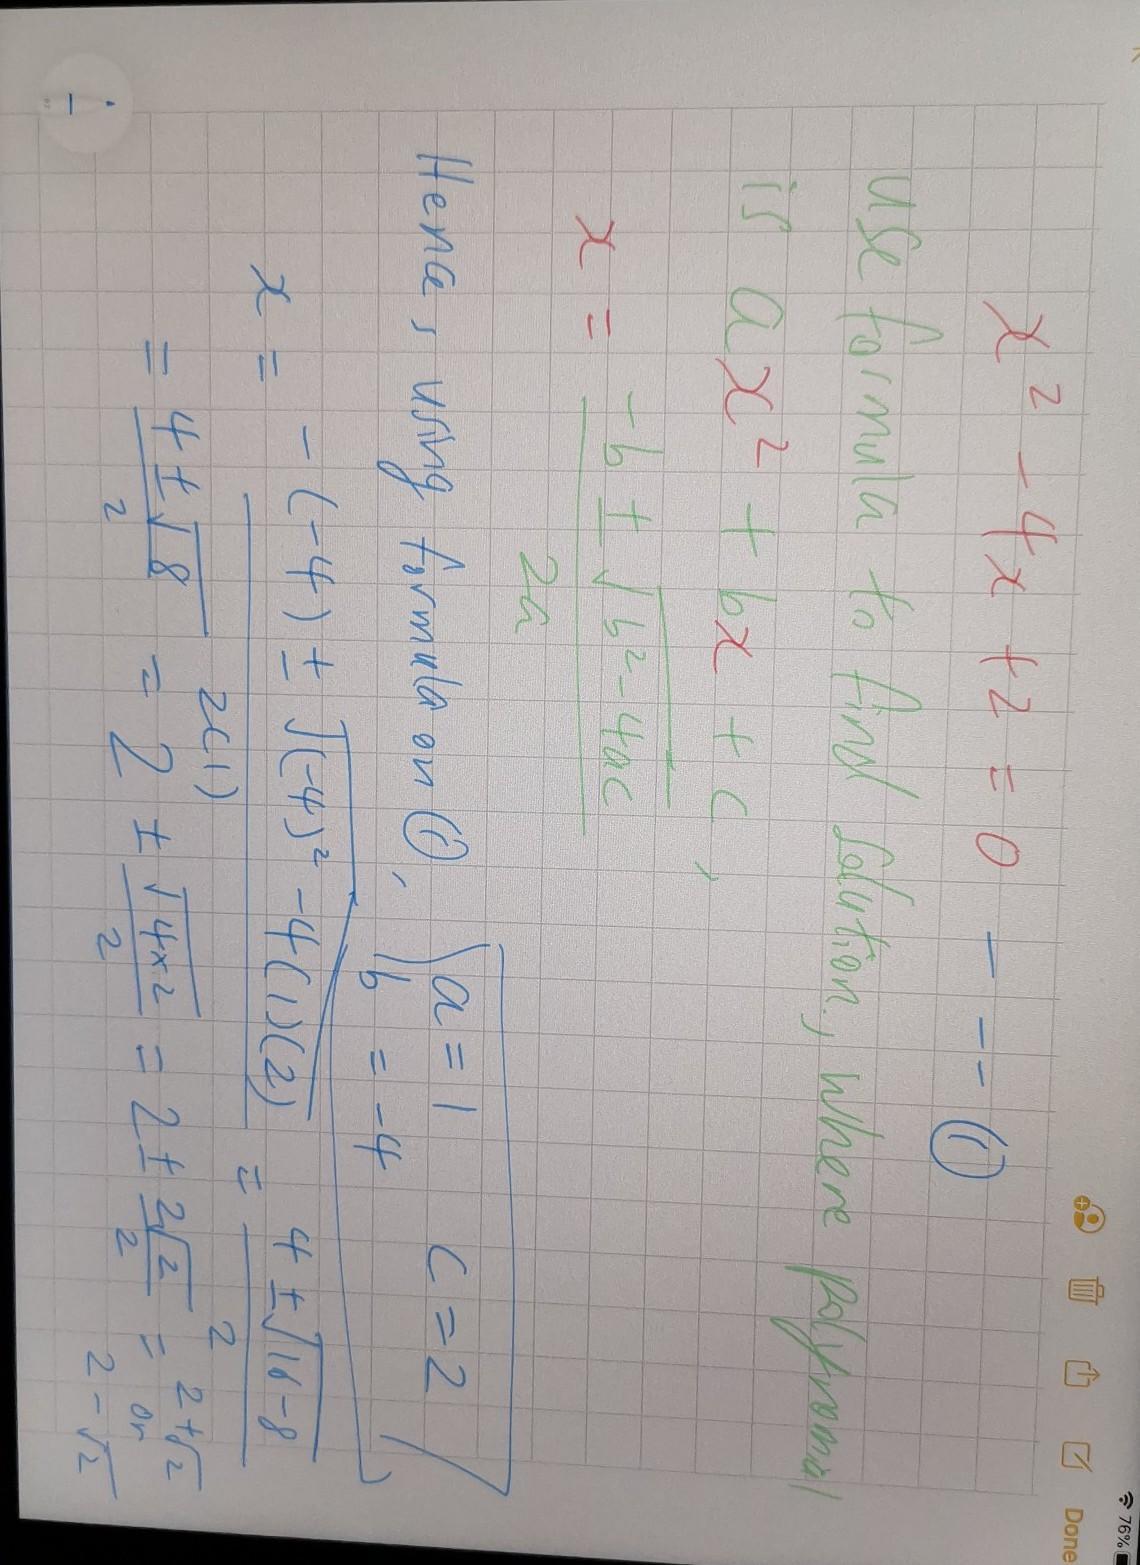 76%
Done
x² - 4x + 2 = 0 - - - ①
Use formula to find solution, where polynomial
is ax² + bx + c,
x = (-b ± √(b² - 4ac)) / 2a
Hence, using formula on ①, a = 1 c = 2
b = -4
x = (-(-4) ± √((-4)² - 4(1)(2))) / 2(1) = (4 ± √(16-8)) / 2
= (4 ± √8) / 2 = 2 ± √(4×2) / 2 = 2 ± 2√2 / 2 = 2+√2
or
2-√2